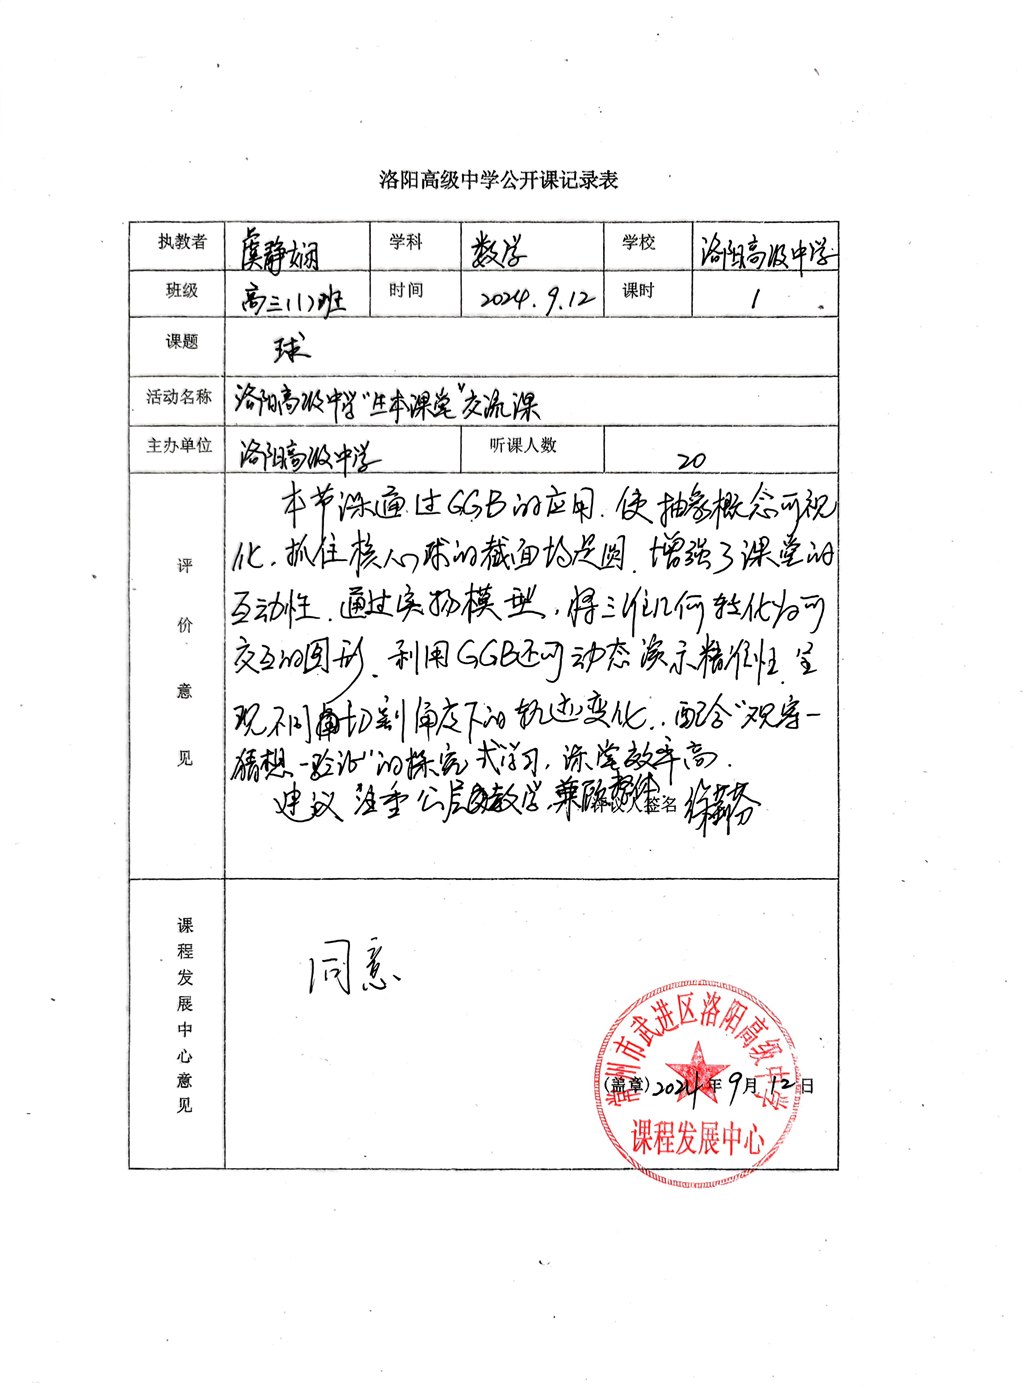 洛阳高级中学公开课记录表
执教者 虞静娴 学科 数学 学校 洛阳高级中学
班级 高三(1)班 时间 2024.9.12 课时 1
课题 球
活动名称 洛阳高级中学“生本课堂”交流课
主办单位 洛阳高级中学 听课人数 20
评价意见
本节课通过GGB的应用,使抽象概念可视
化,抓住核心球的截面均是圆,增强了课堂的
互动性.通过实物模型,将三维几何转化为可
交互的图形,利用GGB还可动态演示精准性,呈
现不同切割角度下的轨迹变化,配合“观察-
猜想-验证”的探究式学习,课堂效率高.
建议注重分层教学,兼顾整体
人签名
课程发展中心意见
同意
常州市武进区洛阳高级中学
(盖章)2024年9月12日
课程发展中心